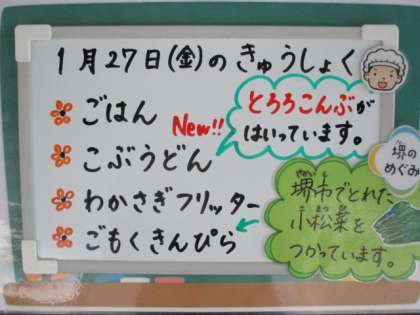 1月27日(金)のきゅうしょく
ごはん
New!!
とろろこんぶが
はいっています。
こぶうどん
わかさぎフリッター
ごもくきんぴら
堺の
めぐみ
堺市でとれた
小松菜を
つかっています。